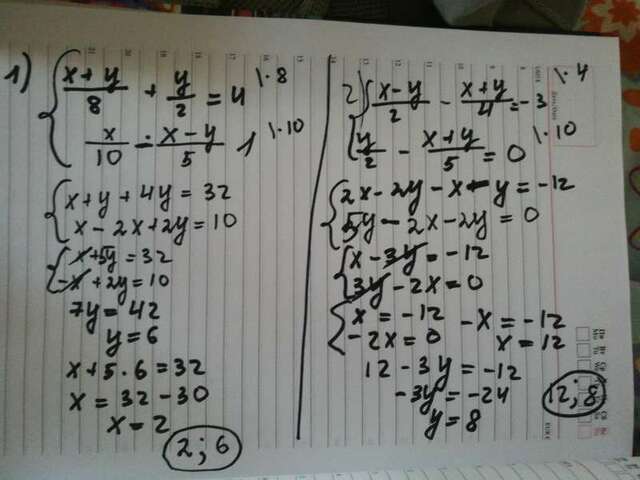 1) { (x+y)/8 + y/2 = 4 |·8
x/10 - (x-y)/5 = 1 |·10
{ x+y+4y=32
x-2x+2y=10
{ x+5y=32
-x+2y=10
7y=42
y=6
x+5·6=32
x=32-30
x=2
2; 6
2) { (x-y)/2 - (x+y)/4 = -3 |·4
{ y/2 - (x+y)/5 = 0 |·10
{ 2x-2y-x-y=-12
5y-2x-2y=0
{ x-3y=-12
3y-2x=0
{ x=-12
-2x=0
-x=-12
x=12
12-3y=-12
-3y=-24
y=8
12; 8